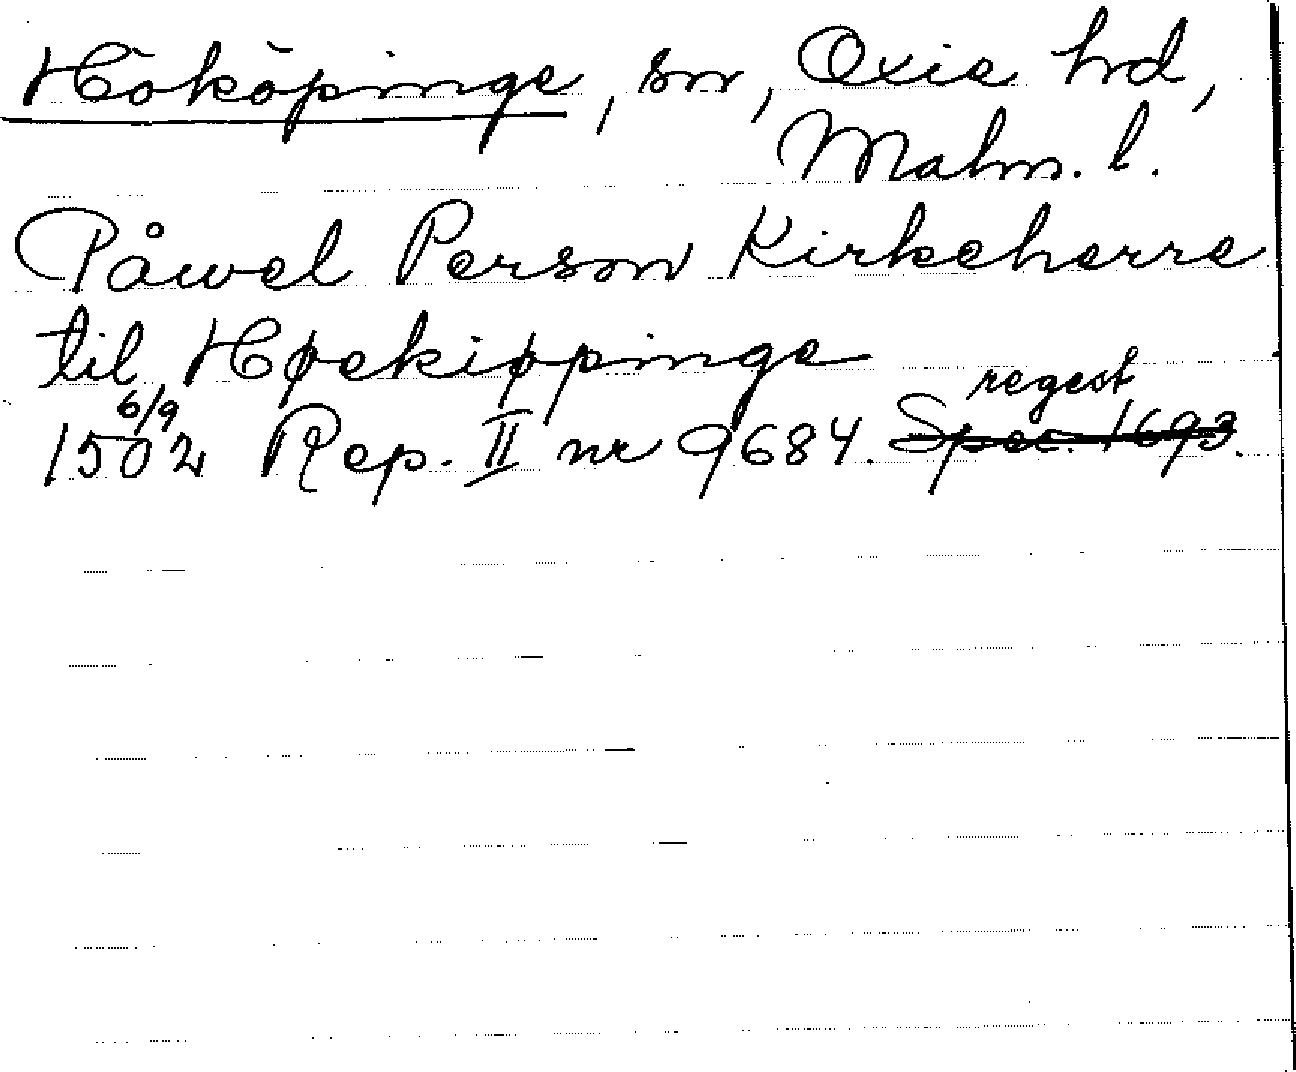 Hököpinge, sn, Oxie hd,
Malm. l.
Påwel Person Kirkeherre
til Høekiøpinge
6/9 regest
1502 Rep. II nr 9684. Spec. 1693.